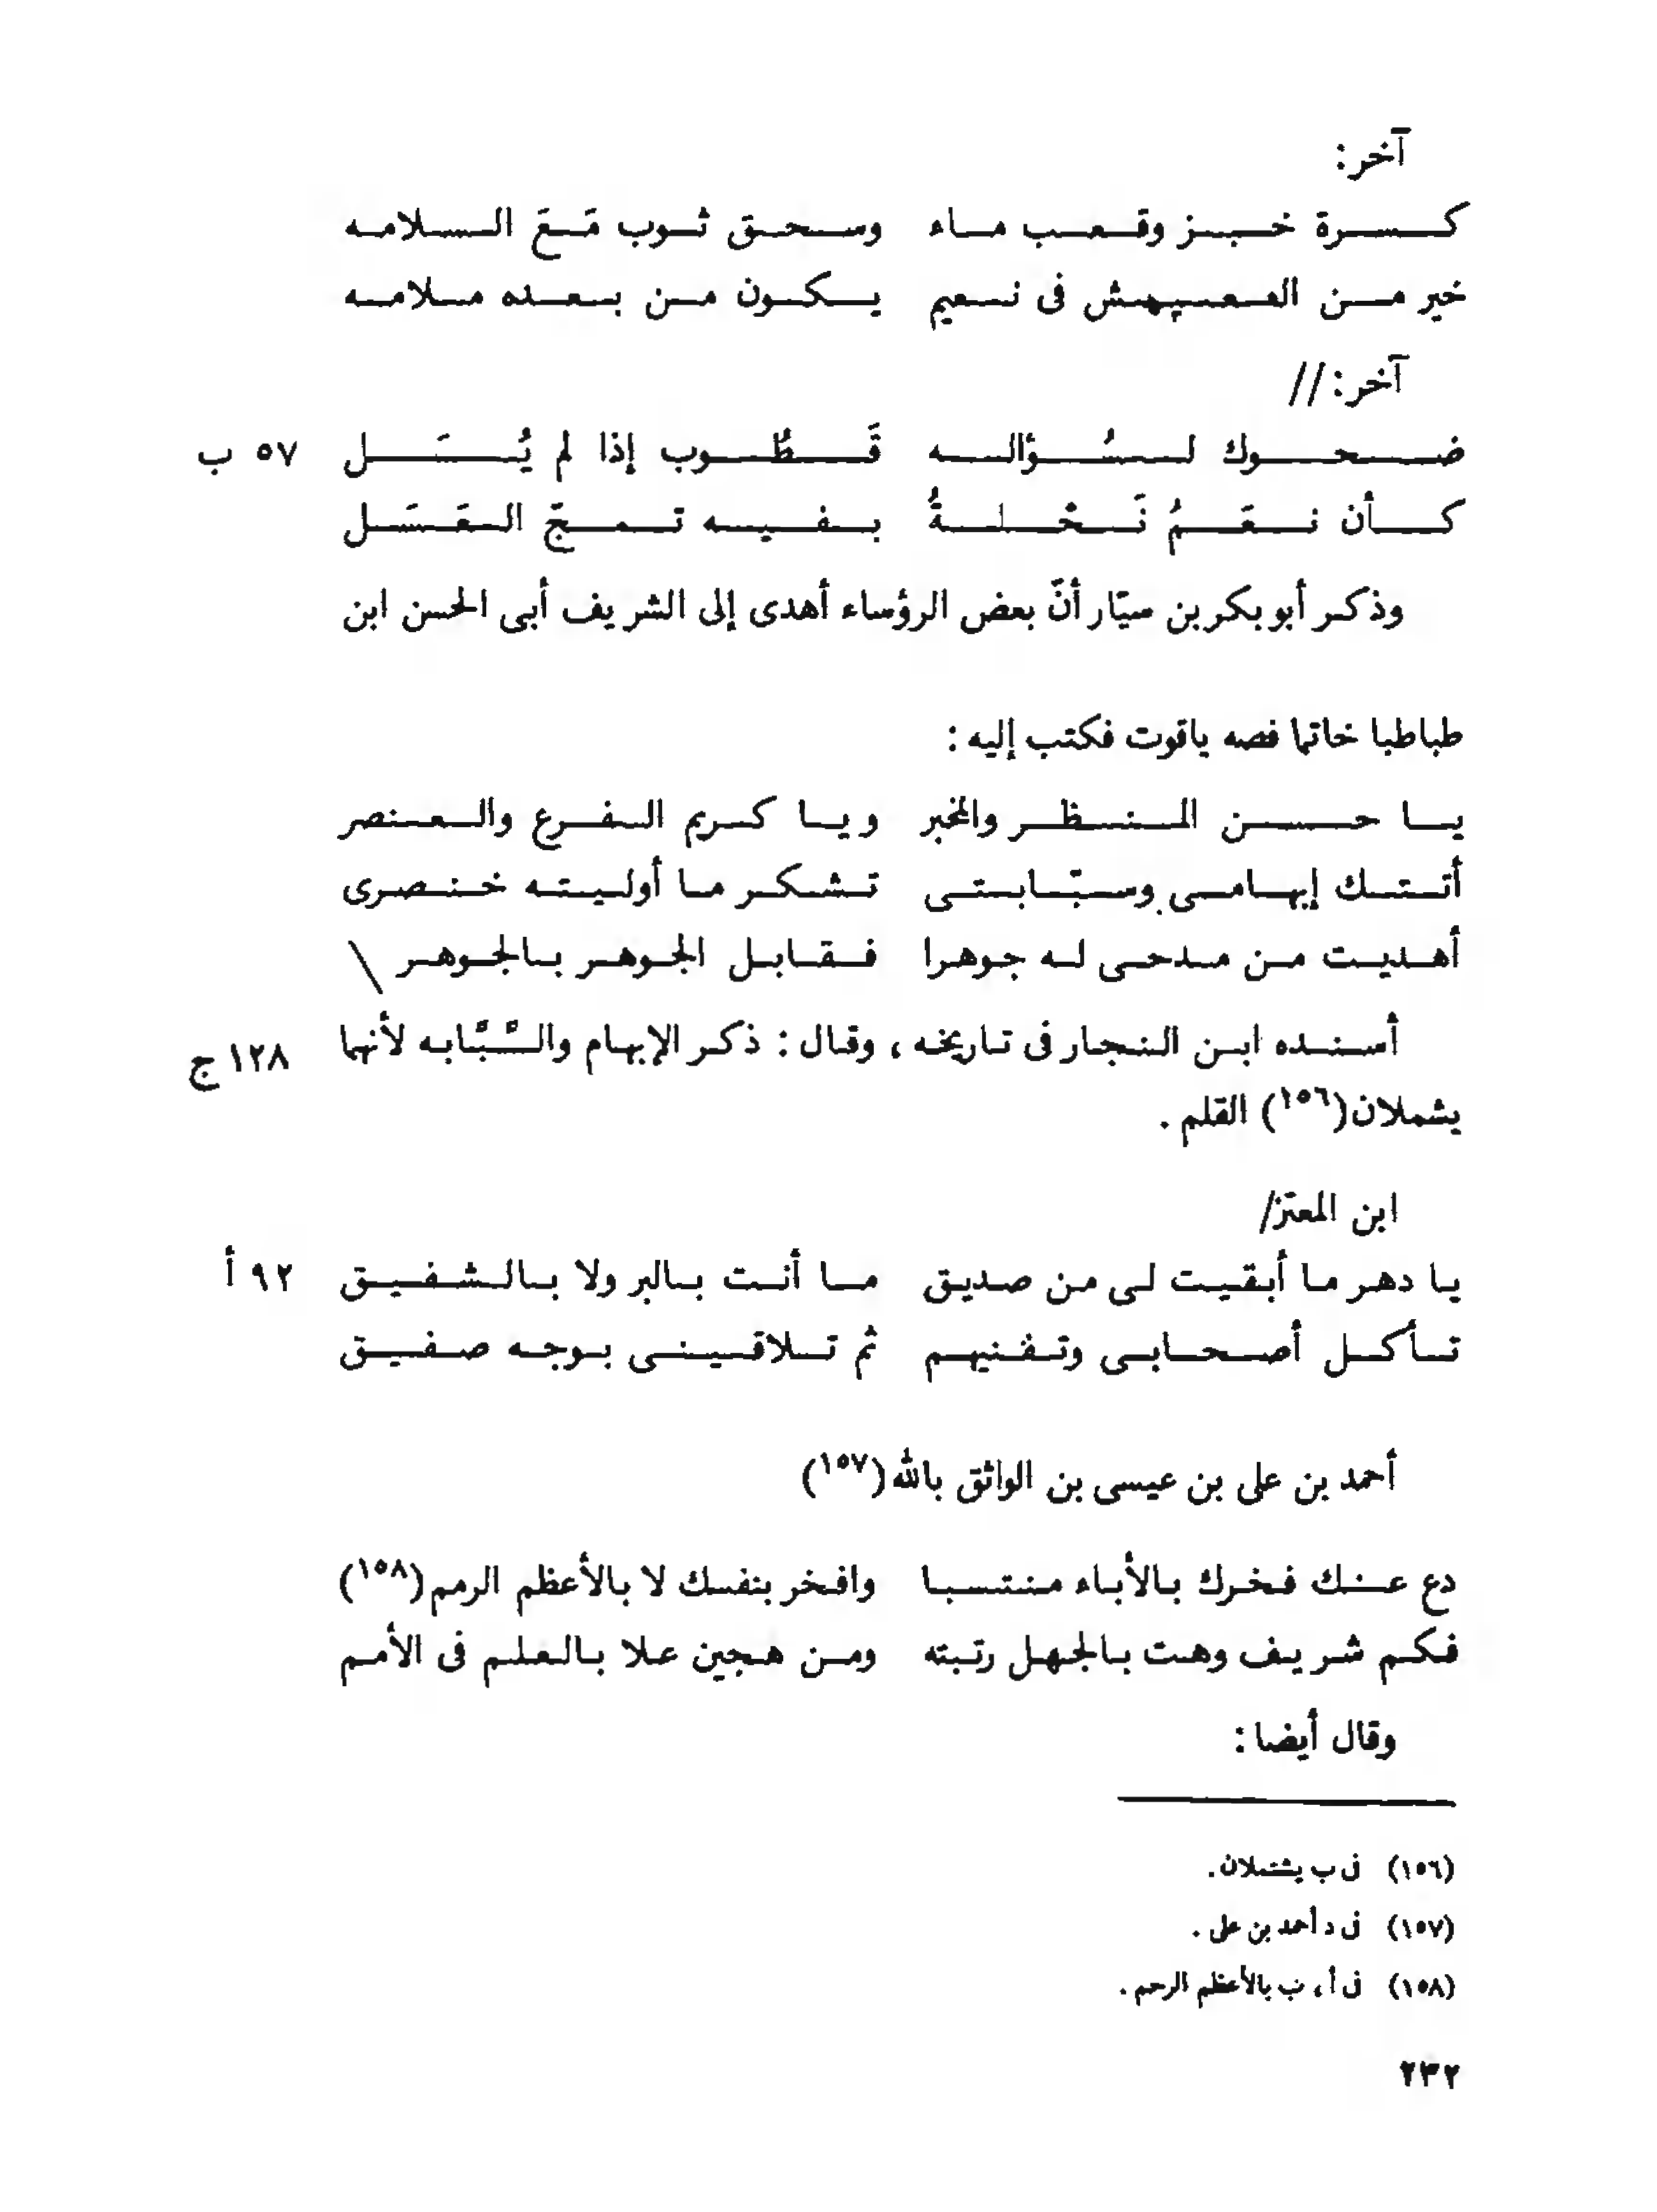 آخر:
كسرة خبز وقعب ماء وسحق ثوب مَعَ السلامه
خير من العيش فى نعيم يكون من بعده ملامه
آخر: //
ضحوك لسُؤاله قَطُوب إذا لم يُسَل ٥٧ ب
كأن نعَمُ نَحْلةُ بفيه تمجّ العَسَل
وذكر أبو بكر بن سيّار أنّ بعض الرؤساء أهدى إلى الشريف أبى الحسن ابن
طباطبا خاتما فصه ياقوت فكتب إليه :
يا حسن المنظر والمخبر ويا كريم الفرع والعنصر
أتتك إبهامى وسبّابتى تشكر ما أوليته خنصرى
أهديت من مدحى له جوهرا فقابل الجوهر بالجوهر \
أسنده ابن النجار فى تاريخه ، وقال : ذكر الإبهام والسَّبَّابه لأنهما ١٢٨ ج
يشملان(١٥٦) القلم .
ابن المعتز/
يا دهر ما أبقيت لى من صديق ما أنت بالبر ولا بالشفيق ٩٢ أ
تأكل أصحابى وتفنيهم ثم تلاقينى بوجه صفيق
أحمد بن على بن عيسى بن الواثق بالله(١٥٧)
دع عنك فخرك بالأباء منتسبا وافخر بنفسك لا بالأعظم الرمم(١٥٨)
فكم شريف وهت بالجهل رتبته ومن هجين علا بالعلم فى الأمم
وقال أيضا :
(١٥٦) فى ب يشتملان .
(١٥٧) فى د أحمد بن على .
(١٥٨) فى أ ، ب بالأعظم الرحم .
٢٣٢